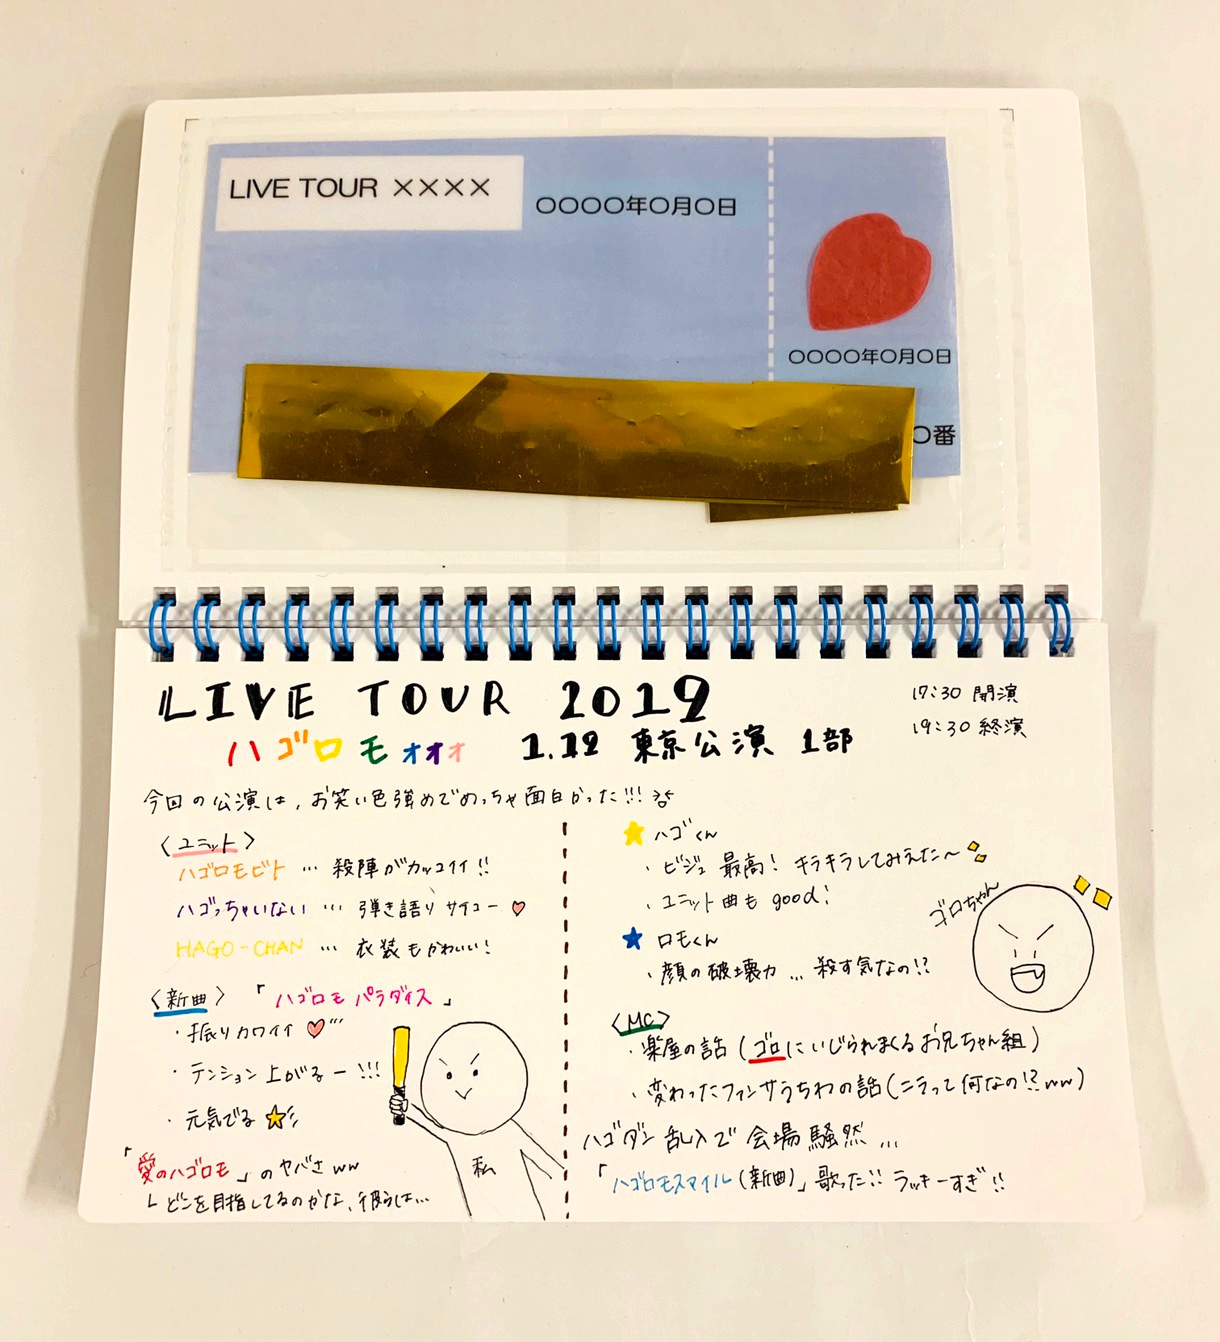 LIVE TOUR ××××
○○○○年○月○日
○○○○年○月○日
○番
LIVE TOUR 2019
ハゴロモォォォ 1.12 東京公演 1部
17:30 開演
19:30 終演
今回の公演は、お笑い色強めでめっちゃ面白かった!!!
〈ユニット〉
ハゴロモビト … 殺陣がカッコイイ!!
ハゴっちゃいない … 弾き語り サイコー♡
HAGO-CHAN … 衣装もかわいい!
〈新曲〉「ハゴロモパラダイス」
・振りカワイイ♡
・テンション上がるー!!!
・元気でる☆
「愛のハゴロモ」のヤバさww
└どこを目指してるのかな、彼らは…
私
★ハゴくん
・ビジュ最高! キラキラしてみえた〜
・ユニット曲も good!
★ロモくん
・顔の破壊力…殺す気なの!?
ゴロちゃん
〈MC〉
・楽屋の話(ゴロにいじられまくるお兄ちゃん組)
・変わったファンサうちわの話(ニラって何なの!?ww)
ハゴダン乱入で会場騒然…
「ハゴロモスマイル(新曲)」歌った!! ラッキーすぎ!!